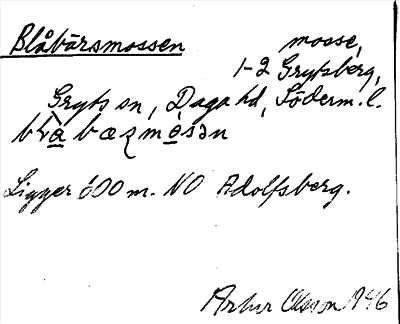 Blåbärsmossen mosse,
1-2 Grytsberg,
Gryts sn, Daga hd, Söderm. l.
Ligger 600 m. NO Adolfsberg.
Artur Olsson 1946